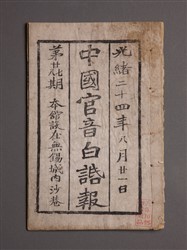 光緒二十四年八月廿一日
中國官音白話報
第廿七期 本館設在無錫城內沙巷